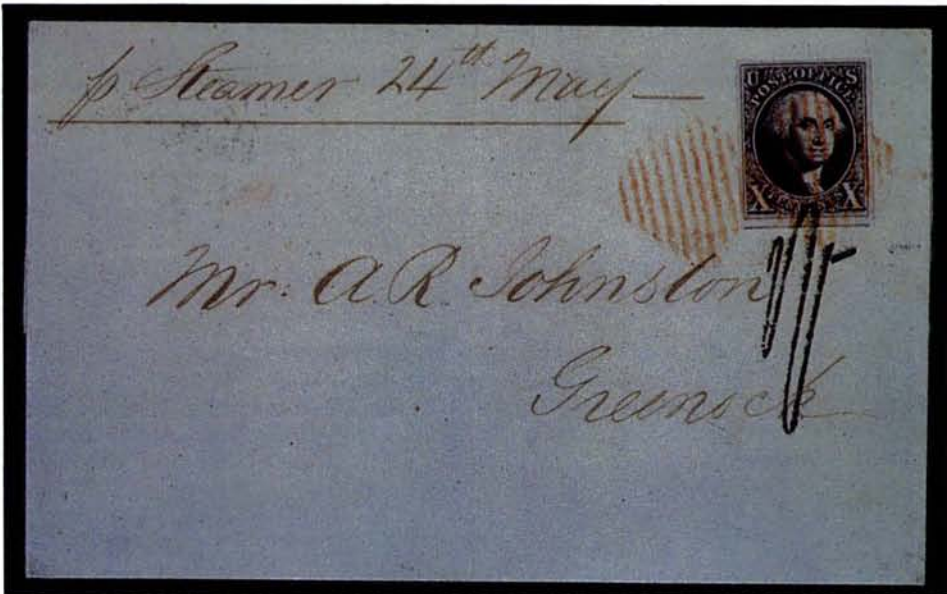 p Steamer 24th May
U S
POST OFFICE
X X
Mr. A. R. Johnston
Greenock